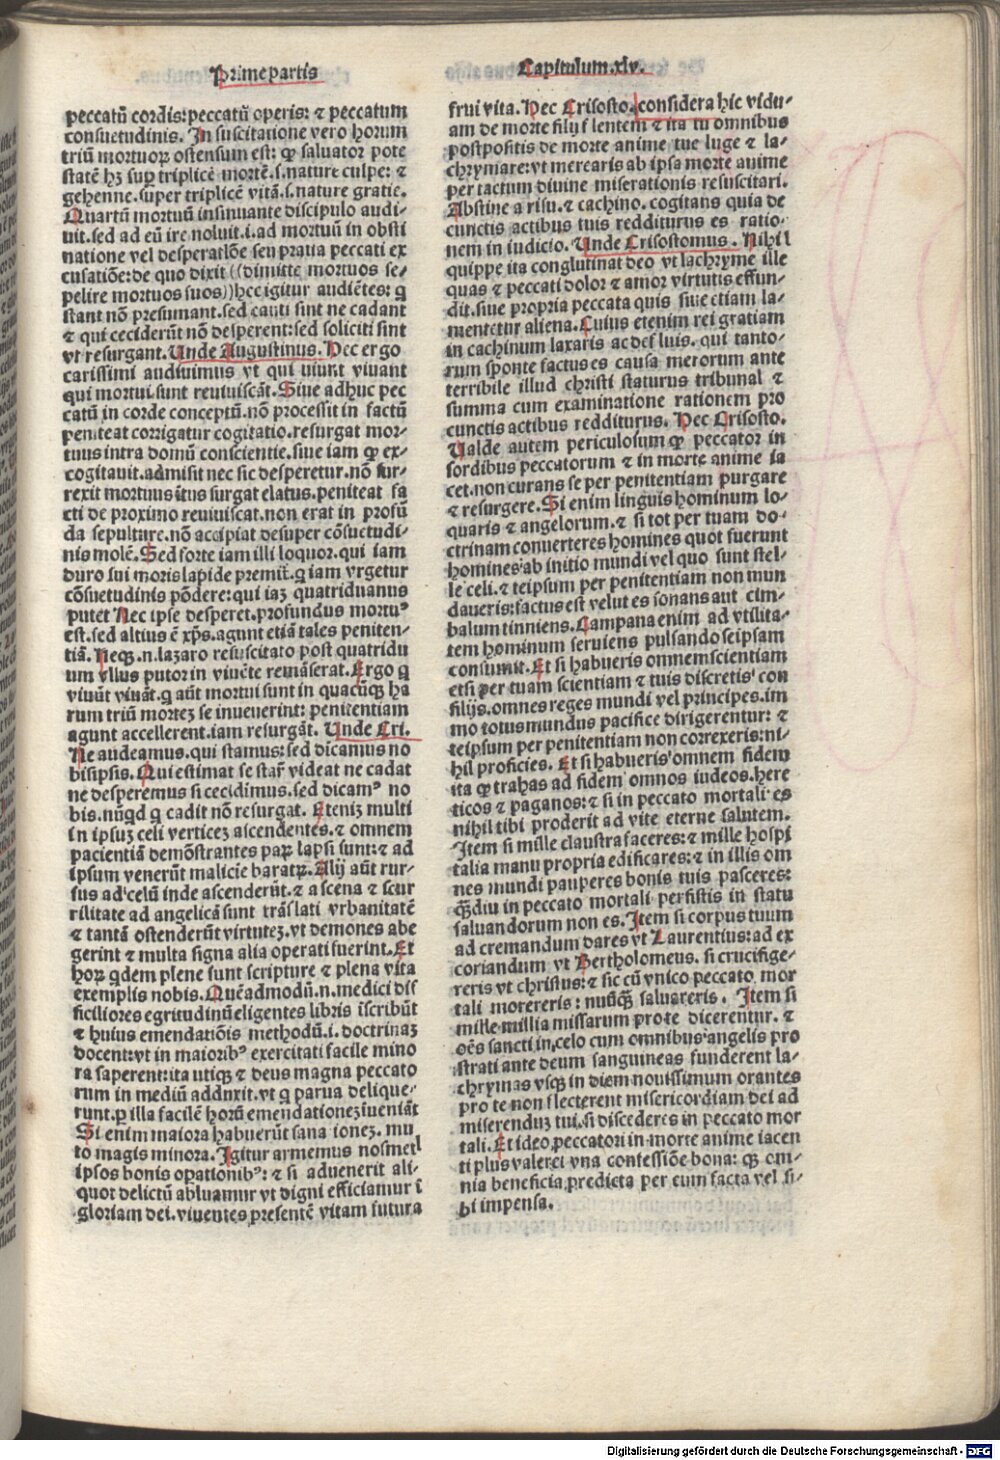 Prime partis
Capitulum.xlv.
peccatū cordis: peccatū operis: ⁊ peccatum
consuetudinis. In suscitatione vero horum
triū mortuoꝝ ostensum est: ꝙ saluator pote
statē hꝫ suꝑ triplicē mortē.i.nature culpe: ⁊
gehenne.super triplicē vitā.i.nature gratie.
Quartū mortuū insinuante discipulo audi-
uit.sed ad eū ire noluit.i.ad mortuū in obsti
natione vel desperatiōe seu praua peccati ex
cusatiōe: de quo dixit ((dimitte mortuos se-
pelire mortuos suos)) hec igitur audiētes: q
stant nō presumant.sed cauti sint ne cadant
⁊ qui ceciderūt nō desperent: sed soliciti sint
vt resurgant. Unde Augustinus. Hec ergo
carissimi audiuimus vt qui viuūt viuant
qui mortui sunt reuiuiscāt. Siue adhuc pec
catū in corde conceptū.nō processit in factū
peniteat corrigatur cogitatio.resurgat mor-
tuus intra domū conscientie.siue iam ꝙ ex-
cogitauit.admisit nec sic desperetur.nō sur-
rexit mortuus ītus surgat elatus.peniteat fa
cti de proximo reuiuiscat.non erat in profū
da sepulture.nō accipiat desuper cōsuetudi-
nis molē. Sed forte iam illi loquor.qui iam
duro sui moris lapide premit̄.q iam vrgetur
cōsuetudinis pōdere: qui iaꝫ quatriduanus
putet Nec ipse desperet.profundus mortuꝰ
est.sed altius ē xp̄s.agunt etiā tales peniten-
tiā. Neqꝫ.n.lazaro resuscitato post quatridu
um vllus putor in viuēte remāserat. Ergo q
viuūt viuāt.q aūt mortui sunt in quacūqꝫ ha
rum triū morteꝫ se inuenerint: penitentiam
agunt accellerent.iam resurgāt. Unde Cri.
Ne audeamus.qui stamus: sed dicamus no
bisipsis. Qui estimat se star̄ videat ne cadat
ne desperemus si cecidimus.sed dicamꝰ no
bis.nūqd q cadit nō resurgat. Eteniꝫ multi
in ipsuꝫ celi verticeꝫ ascendentes.⁊ omnem
pacientiā demōstrantes paꝝ lapsi sunt: ⁊ ad
ipsum venerūt malicie baratꝝ. Alij aūt rur-
sus ad celū inde ascenderūt.⁊ a scena ⁊ scur
rilitate ad angelicā sunt trāslati vrbanitatē
⁊ tantā ostenderūt virtuteꝫ.vt demones abe
gerint ⁊ multa signa alia operati fuerint. Et
hoꝝ qdem plene sunt scripture ⁊ plena vita
exemplis nobis. Quēadmodū.n.medici dif
ficiliores egritudinū eligentes libris īscribūt
⁊ huius emendatiōis methodū.i.doctrinaꝫ
docent: vt in maioribꝰ exercitati facile mino
ra saperent: ita utiqꝫ ⁊ deus magna peccato
rum in mediū adduxit.vt q parua delique-
runt.ꝑ illa facilē horū emendationeꝫ īueniāt
Si enim maiora habuerūt sana ioneꝫ. mu
to magis minora. Igitur armemus nosmetl
ipsos bonis oꝑationibꝰ: ⁊ si aduenerit ali-
quot delictū abluamur vt digni efficiamur ī
gloriam dei.viuentes presentē vitam futura
frui vita. Hec Crisosto. considera hic vidu-
am de morte filij flentem ⁊ ita tu omnibus
postpositis de morte anime tue luge ⁊ la-
chrymare: vt merearis ab ipsa morte anime
per tactum diuine miserationis resuscitari.
Abstine a risu.⁊ cachino. cogitans quia de
cunctis actibus tuis redditurus es ratio-
nem in iudicio. Unde Crisostomus. Nihil
quippe ita conglutinat deo vt lachryme ille
quas ⁊ peccati dolor ⁊ amor virtutis effun-
dit.siue propria peccata quis siue etiam la-
mentetur aliena. Cuius etenim rei gratiam
in cachinum laxaris ac defluis. qui tanto-
rum sponte factus es causa merorum ante
terribile illud christi staturus tribunal ⁊
summa cum examinatione rationem pro
cunctis actibus redditurus. Hec Crisosto.
Ualde autem periculosum ꝙ peccator in
sordibus peccatorum ⁊ in morte anime ia
cet.non curans se per penitentiam purgare
⁊ resurgere. Si enim linguis hominum lo-
quaris ⁊ angelorum.⁊ si tot per tuam do-
ctrinam conuerteres homines quot fuerunt
homines ab initio mundi vel quo sunt stel-
le celi.⁊ teipsum per penitentiam non mun
daueris: factus est velut es sonans aut cim-
balum tinniens. Campana enim ad vtilita-
tem hominum seruiens pulsando seipsam
consumit. Et si habueris omnem scientiam
etsi per tuam scientiam ⁊ tuis discretis con
silijs.omnes reges mundi vel principes.im
mo totus mundus pacifice dirigerentur: ⁊
teipsum per penitentiam non correxeris: ni-
hil proficies. Et si habueris omnem fidem
ita ꝙ trahas ad fidem omnos iudeos.here
ticos ⁊ paganos: ⁊ si in peccato mortali es
nihil tibi proderit ad vite eterne salutem.
Item si mille claustra faceres: ⁊ mille hospi
talia manu propria edificares: ⁊ in illis om
nes mundi pauperes bonis tuis pasceres:
qꝫdiu in peccato mortali perfistis in statu
saluandorum non es. Item si corpus tuum
ad cremandum dares vt Laurentius: ad ex
coriandum vt Bertholomeus. si crucifige-
reris vt christus: ⁊ sic cū vnico peccato mor
tali morereris: nūqꝫ saluareris. Item si
mille millia missarum pro te dicerentur. ⁊
oēs sancti in celo cum omnibus angelis pro
strati ante deum sanguineas funderent la-
chrymas vsqꝫ in diem nouissimum orantes
pro te non flecterent misericordiam dei ad
miserenduꝫ tui.si discederes in peccato mor
tali. Et ideo peccatori in morte anime iacen
ti plus valeret vna confessiōe bona: qꝫ om-
nia beneficia predicta per eum facta vel si-
bi impensa.
Digitalisierung gefördert durch die Deutsche Forschungsgemeinschaft - DFG